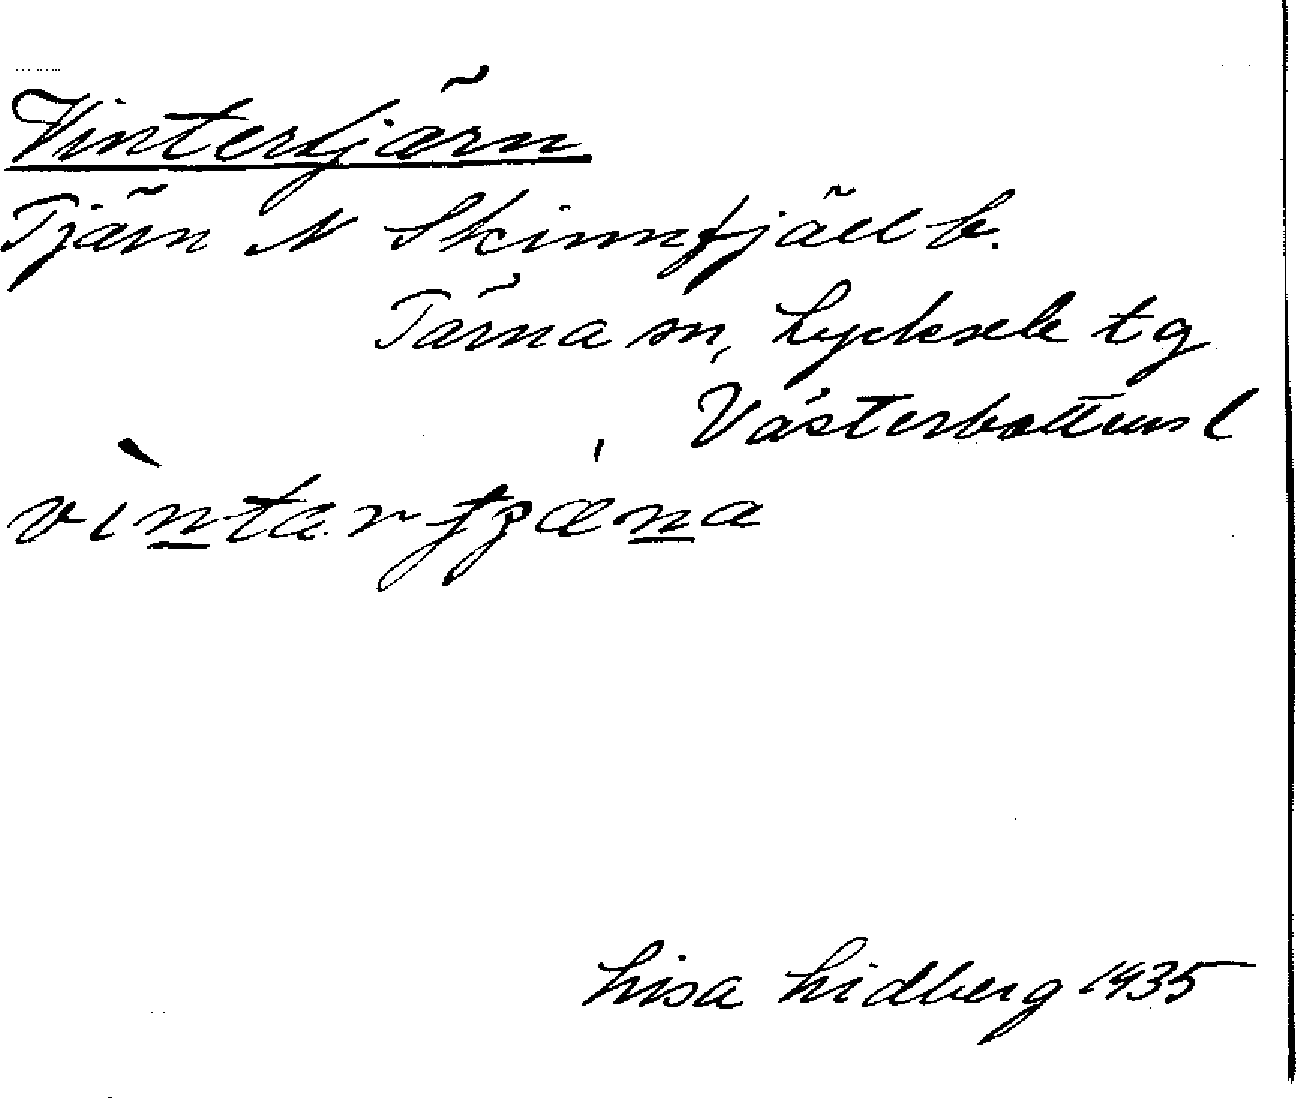 Vintertjärn
Tjärn N Skinnfjäll b.
Tärna sn, Lycksele tg
Västerbottens l
Lisa Lidberg 1935